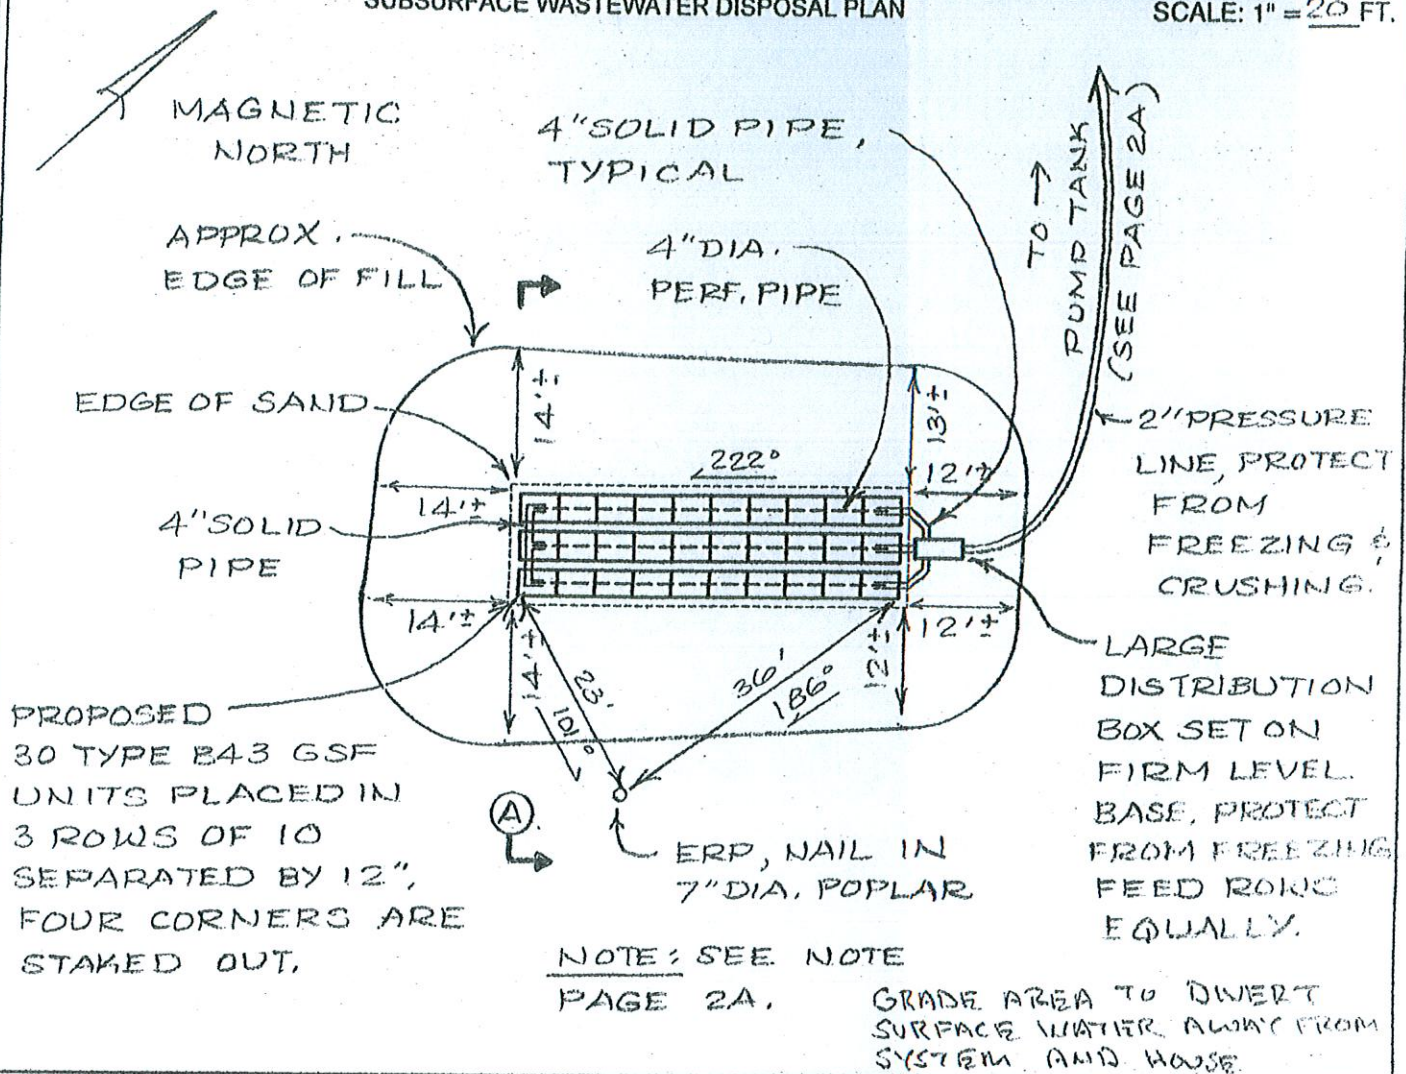 SUBSURFACE WASTEWATER DISPOSAL PLAN
SCALE: 1" = 20 FT.
MAGNETIC
NORTH
4" SOLID PIPE,
TYPICAL
TO →
PUMP TANK
(SEE PAGE 2A)
APPROX.
EDGE OF FILL
4" DIA.
PERF. PIPE
EDGE OF SAND
14'±
13'±
222°
12'±
14'±
2" PRESSURE
LINE, PROTECT
FROM
FREEZING &
CRUSHING.
4" SOLID
PIPE
14'±
14'±
23'
101°
36'
186°
12'±
12'±
LARGE
DISTRIBUTION
BOX SET ON
FIRM LEVEL
BASE, PROTECT
FROM FREEZING
FEED ROWS
EQUALLY.
PROPOSED
30 TYPE B43 GSF
UNITS PLACED IN
3 ROWS OF 10
SEPARATED BY 12",
FOUR CORNERS ARE
STAKED OUT.
A
ERP, NAIL IN
7" DIA. POPLAR
NOTE: SEE NOTE
PAGE 2A.
GRADE AREA TO DIVERT
SURFACE WATER AWAY FROM
SYSTEM AND HOUSE